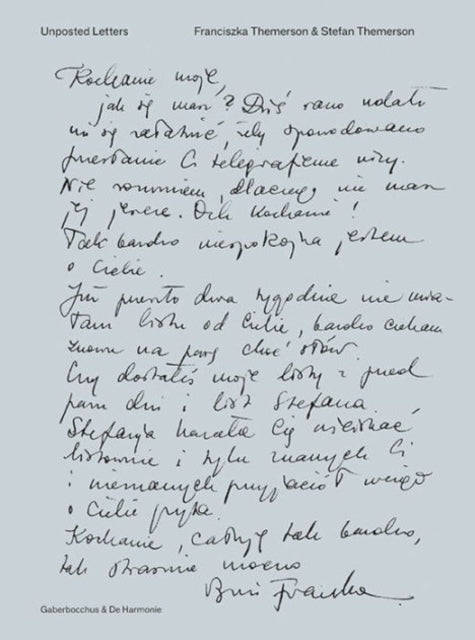 Unposted Letters
Franciszka Themerson & Stefan Themerson
Kochanie moje,
jak się masz? Dziś rano udało
mi się załatwić, żeby spowodowano
przesłanie Ci telegraficzne wizy.
Nie rozumiem, dlaczego nie masz
jej jeszcze. Och kochanie!
Tak bardzo niespokojna jestem
o Ciebie.
Już prawie dwa tygodnie nie mia-
łam listu od Ciebie, bardzo czekam
znowu na parę choć słów.
Czy dostałeś moje listy z przed
paru dni i list Stefana.
Stefania kazała Cię uściskać
listownie i tylu znanych Ci
i nieznanych przyjaciół wciąż
o Ciebie pyta.
Kochanie, całuję tak bardzo,
tak strasznie mocno
Franka
Gaberbocchus & De Harmonie